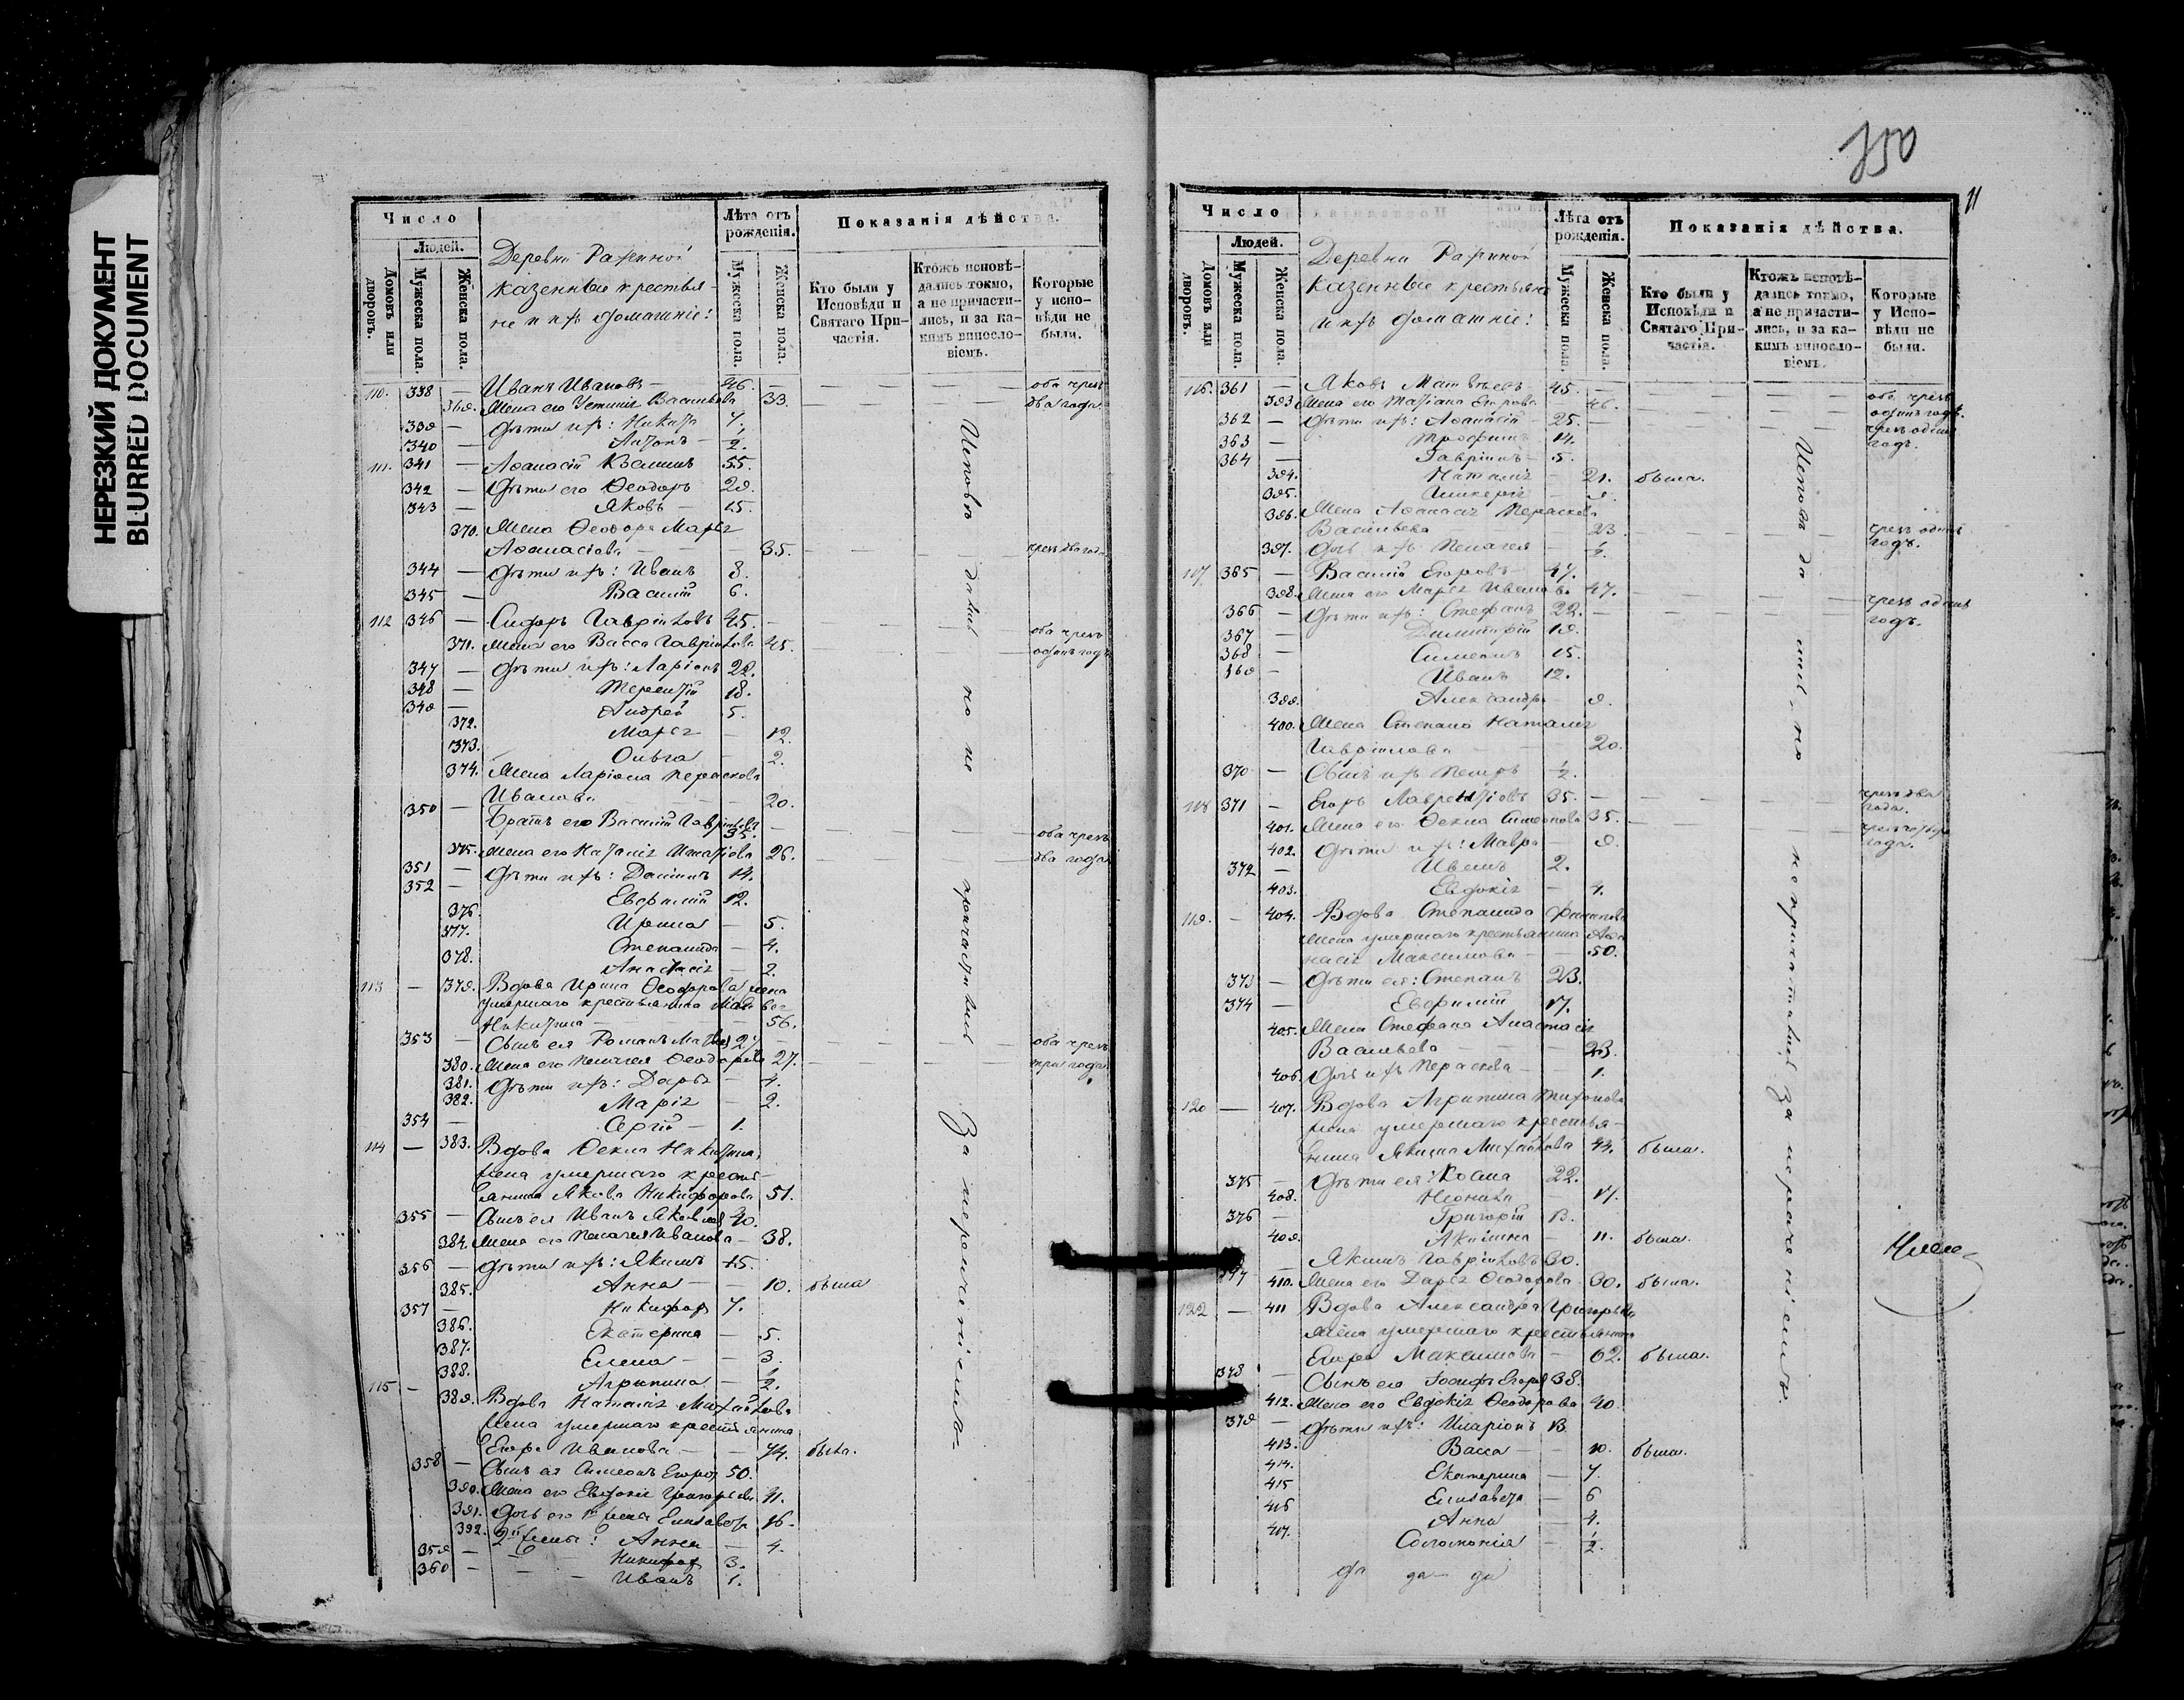 НЕРЕЗКИЙ ДОКУМЕНТ
BLURRED DOCUMENT
Число
Людей.
Домовъ или дворовъ.
Мужеска пола.
Женска пола.
Деревни
казенные крестья-
не и ихъ домашніе:
Лѣта отъ рожденія.
Мужеска пола.
Женска пола.
Показанія дѣйства.
Кто были у Исповѣди и Святаго Причастія.
Ктожъ исповѣдались токмо, а не причастились, и за какимъ винословіемъ.
Которые у исповѣди не были.
110. 338 — Иванъ Ивановъ — 46. — оба чрезъ
369. Жена его Устинія Васильева 33. два года
339 — Дѣти ихъ: Никита 7.
340 Антонъ — 1/2.
111. 341 — Аѳанасій Козминъ 55.
342 — Дѣти его Ѳеодоръ 29.
343 — Яковъ — 15.
370. Жена Ѳеодора Марья
Аѳанасіева — 35. чрезъ два года
344 — Дѣти ихъ: Иванъ 8.
345 — Василій 6.
112 346 — Сидоръ Гавриловъ 45. — оба чрезъ
371. Жена его Васса Гаврилова 45. одинъ годъ
347 — Дѣти ихъ: Ларіонъ 22.
348 — Терентій 18.
349 — Андрей 5.
372. Марья — 12.
373. Ольга — 2.
374. Жена Ларіона Параскева
Иванова 20.
350 — Братъ его Василій Гавриловъ
35. — оба чрезъ
375. Жена его Наталія 26. два года
351 — Дѣти ихъ: Даніилъ 14.
352 — Евфимій 12.
376. Ирина — 5.
377. Степанида — 4.
378. Анастасія — 2.
113 — 379. Вдова Ирина Ѳеодорова жена
умершаго крестьянина Матвея
Никитина — 56.
353 — Сынъ ея Романъ 27. — оба чрезъ
380. Жена его Пелагея Ѳеодорова 27. три года
381. Дѣти ихъ: Дарья — 4.
382. Марія — 2.
354 — Сергій — 1.
114 — 383. Вдова Ѳекла Никитина,
жена умершаго кресть-
янина Якова Никифорова 51.
355 — Сынъ ея Иванъ Яковлевъ 40.
384. Жена его Пелагея Иванова — 38.
356 — Дѣти ихъ: Якимъ 15.
385. Анна — 10. была
357 — Никифоръ 7.
386. Екатерина — 5.
387. Елена — 3.
388. Агрипина — 1/2.
115 — 389. Вдова Наталія Михайлова
жена умершаго крестьянина
Егора Иванова — 74. была.
358 — Сынъ ея Симеонъ Егоровъ 50.
390. Жена его Евдокія Григорьева 41.
391. Дочь его 1й жены Елисавета 16.
392. 2й жены: Анна — 4.
359 — Никифоръ 3.
360 — Иванъ 1.
Исповѣдались но не причастились За нерачениемъ.
350
11
Число
Людей.
Домовъ или дворовъ.
Мужеска пола.
Женска пола.
Деревни
казенные крестьяне
и ихъ домашніе:
Лѣта отъ рожденія.
Мужеска пола.
Женска пола.
Показанія дѣйства.
Кто были у Исповѣди и Святаго Причастія.
Ктожъ исповѣдались токмо, а не причастились, и за какимъ винословіемъ.
Которые у Исповѣди не были.
116. 361 — Яковъ Матвѣевъ 45. — оба чрезъ
393. Жена его Татіана Егорова 46. одинъ годъ.
362 — Дѣти ихъ: Аѳанасій — 25. чрезъ одинъ
363 — Трофимъ 14. годъ.
364 — Гавріилъ — 5.
394. Наталія — 21. была.
395. Гликерія — 9.
396. Жена Аѳанасія Параскева
Васильева 23. чрезъ одинъ
397. Дочь ихъ Пелагея — 1/2. годъ.
117 365 — Василій Егоровъ — 47.
398. Жена его Марья Иванова 47. чрезъ одинъ
366 — Дѣти ихъ: Стефанъ 22. годъ.
367 — Димитрій 19.
368 — Симеонъ 15.
369 — Иванъ 12.
399. Александра — 9.
400. Жена Степана Наталія
Гаврилова 20.
370 — Сынъ ихъ Петръ 1/2.
118 371 — Егоръ Лаврентіевъ 35. — чрезъ два года.
401. Жена его Ѳекла Симеонова 35. чрезъ четыре года.
402. Дѣти ихъ: Мавра — 9.
372 — Иванъ 2.
403. Евдокія — 4.
119. — 404. Вдова Степанида
жена умершаго крестьянина Аѳа-
насія Максимова — 50.
373 — Дѣти ея: Степанъ 23.
374 — Евфимій 17.
405. Жена Стефана Анастасія
Васильева 23.
406. Дочь ихъ Параскева — 1.
120 — 407. Вдова Агрипина Тихонова
жена умершаго крестья-
нина Якима Михайлова 44. была.
375 — Дѣти ея: Козма 22.
408. 17.
376 — Григорій 13.
409. Акилина — 11. была.
— Якимъ Гавриловъ 30.
377 410. Жена его Дарія Ѳеодорова 30. была.
122 — 411 Вдова Александра Григорьева
жена умершаго крестьянина
Егора Максимова — 62. была.
378 — Сынъ его Іосифъ Егоровъ 38.
412. Жена его Евдокія Ѳеодорова 40.
379 — Дѣти ихъ: Иларіонъ 13.
413. Васса — 10. была.
414. Екатерина — 7.
415 Елисавета — 6
416 Анна — 4.
417. Соломонія — 1/2.
Исповѣдались, но не причастились за нерачениемъ.